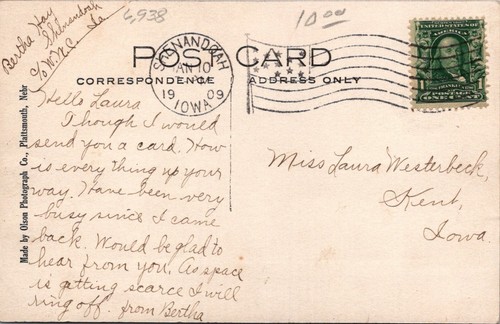 Bertha Hay
Shenandoah
c/o W.N.C. Ia
6,938
10.00
POST CARD
CORRESPONDENCE ADDRESS ONLY
SHENANDOAH
JAN 10
1909
IOWA
Hello Laura
I though I would
send you a card. How
is every thing up your
way. Have been very
busy since I came
back. Would be glad to
hear from you. As space
is getting scarce I will
ring off. from Bertha
Miss Laura Westerbeck,
Kent,
Iowa
Made by Olson Photograph Co., Plattsmouth, Nebr